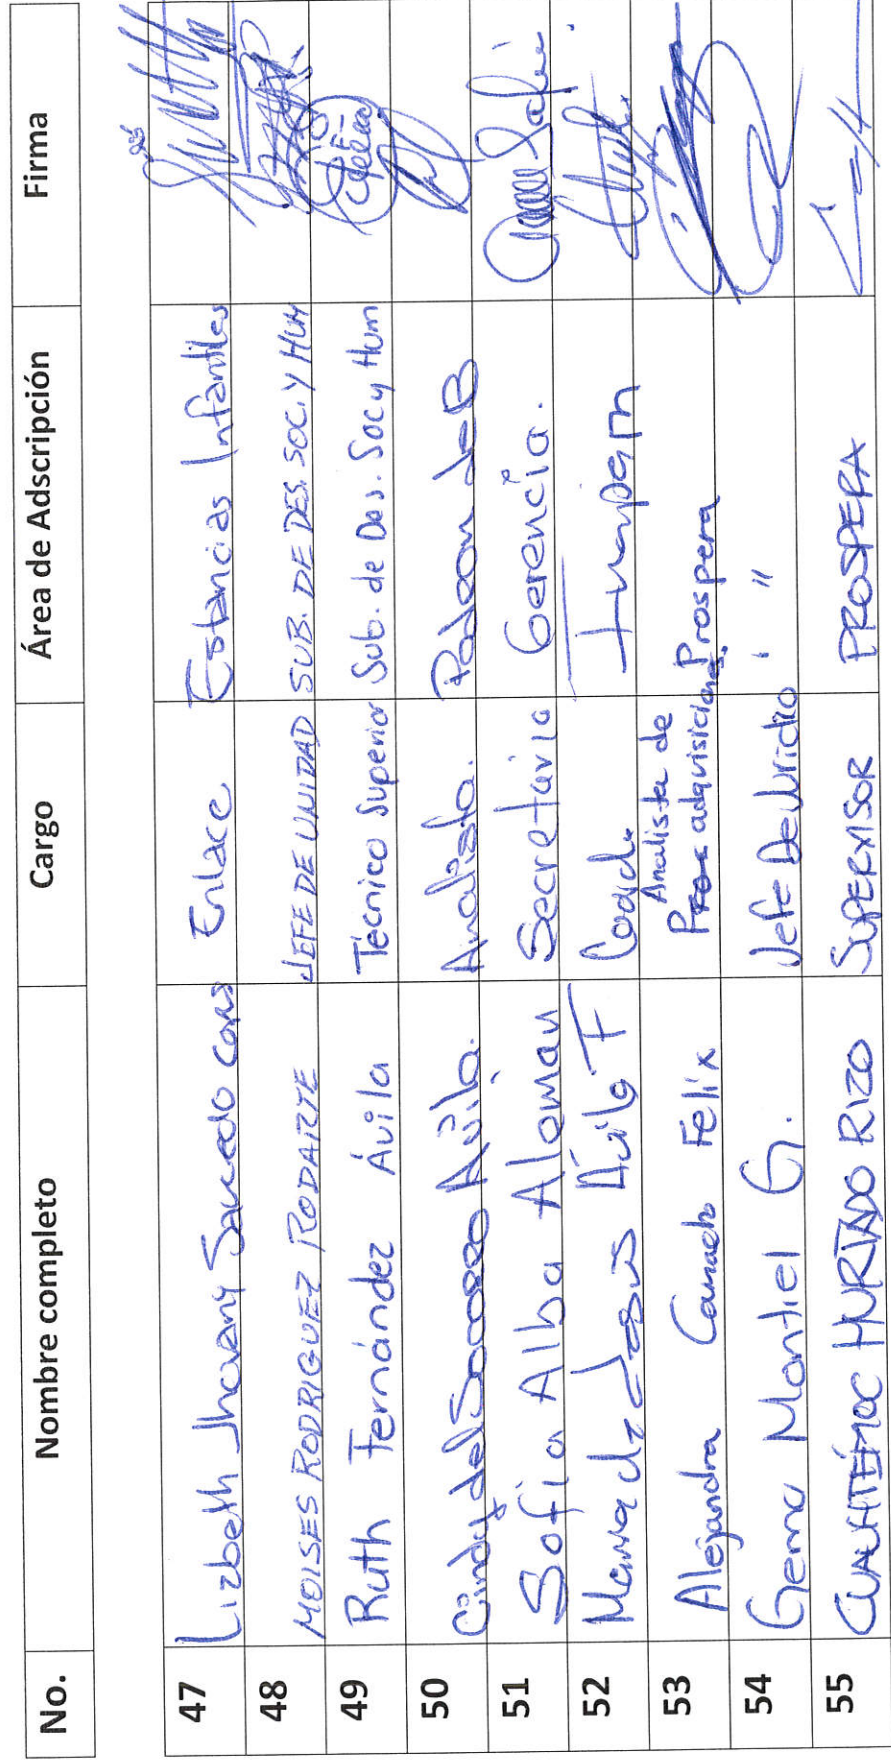 No. Nombre completo Cargo Área de Adscripción Firma
47 Lizbeth Jhovany Saucedo Enlace Estancias Infantiles
48 MOISES RODRIGUEZ RODARTE JEFE DE UNIDAD SUB. DE DES. SOC. Y HUM
49 Ruth Fernández Ávila Técnico Superior Sub. de Des. Soc y Hum
50 Cindy del Socorro Ávila. Analista.
51 Sofia Alba Alemán Secretaria Gerencia.
52 Maria de Jesús Ávila F Inapam
53 Alejandra Camacho Félix Analista de adquisiciones Prospera
54 Gema Montiel G. Jefe De Juridico " "
55 CUAUHTÉMOC HURTADO RIZO SUPERVISOR PROSPERA